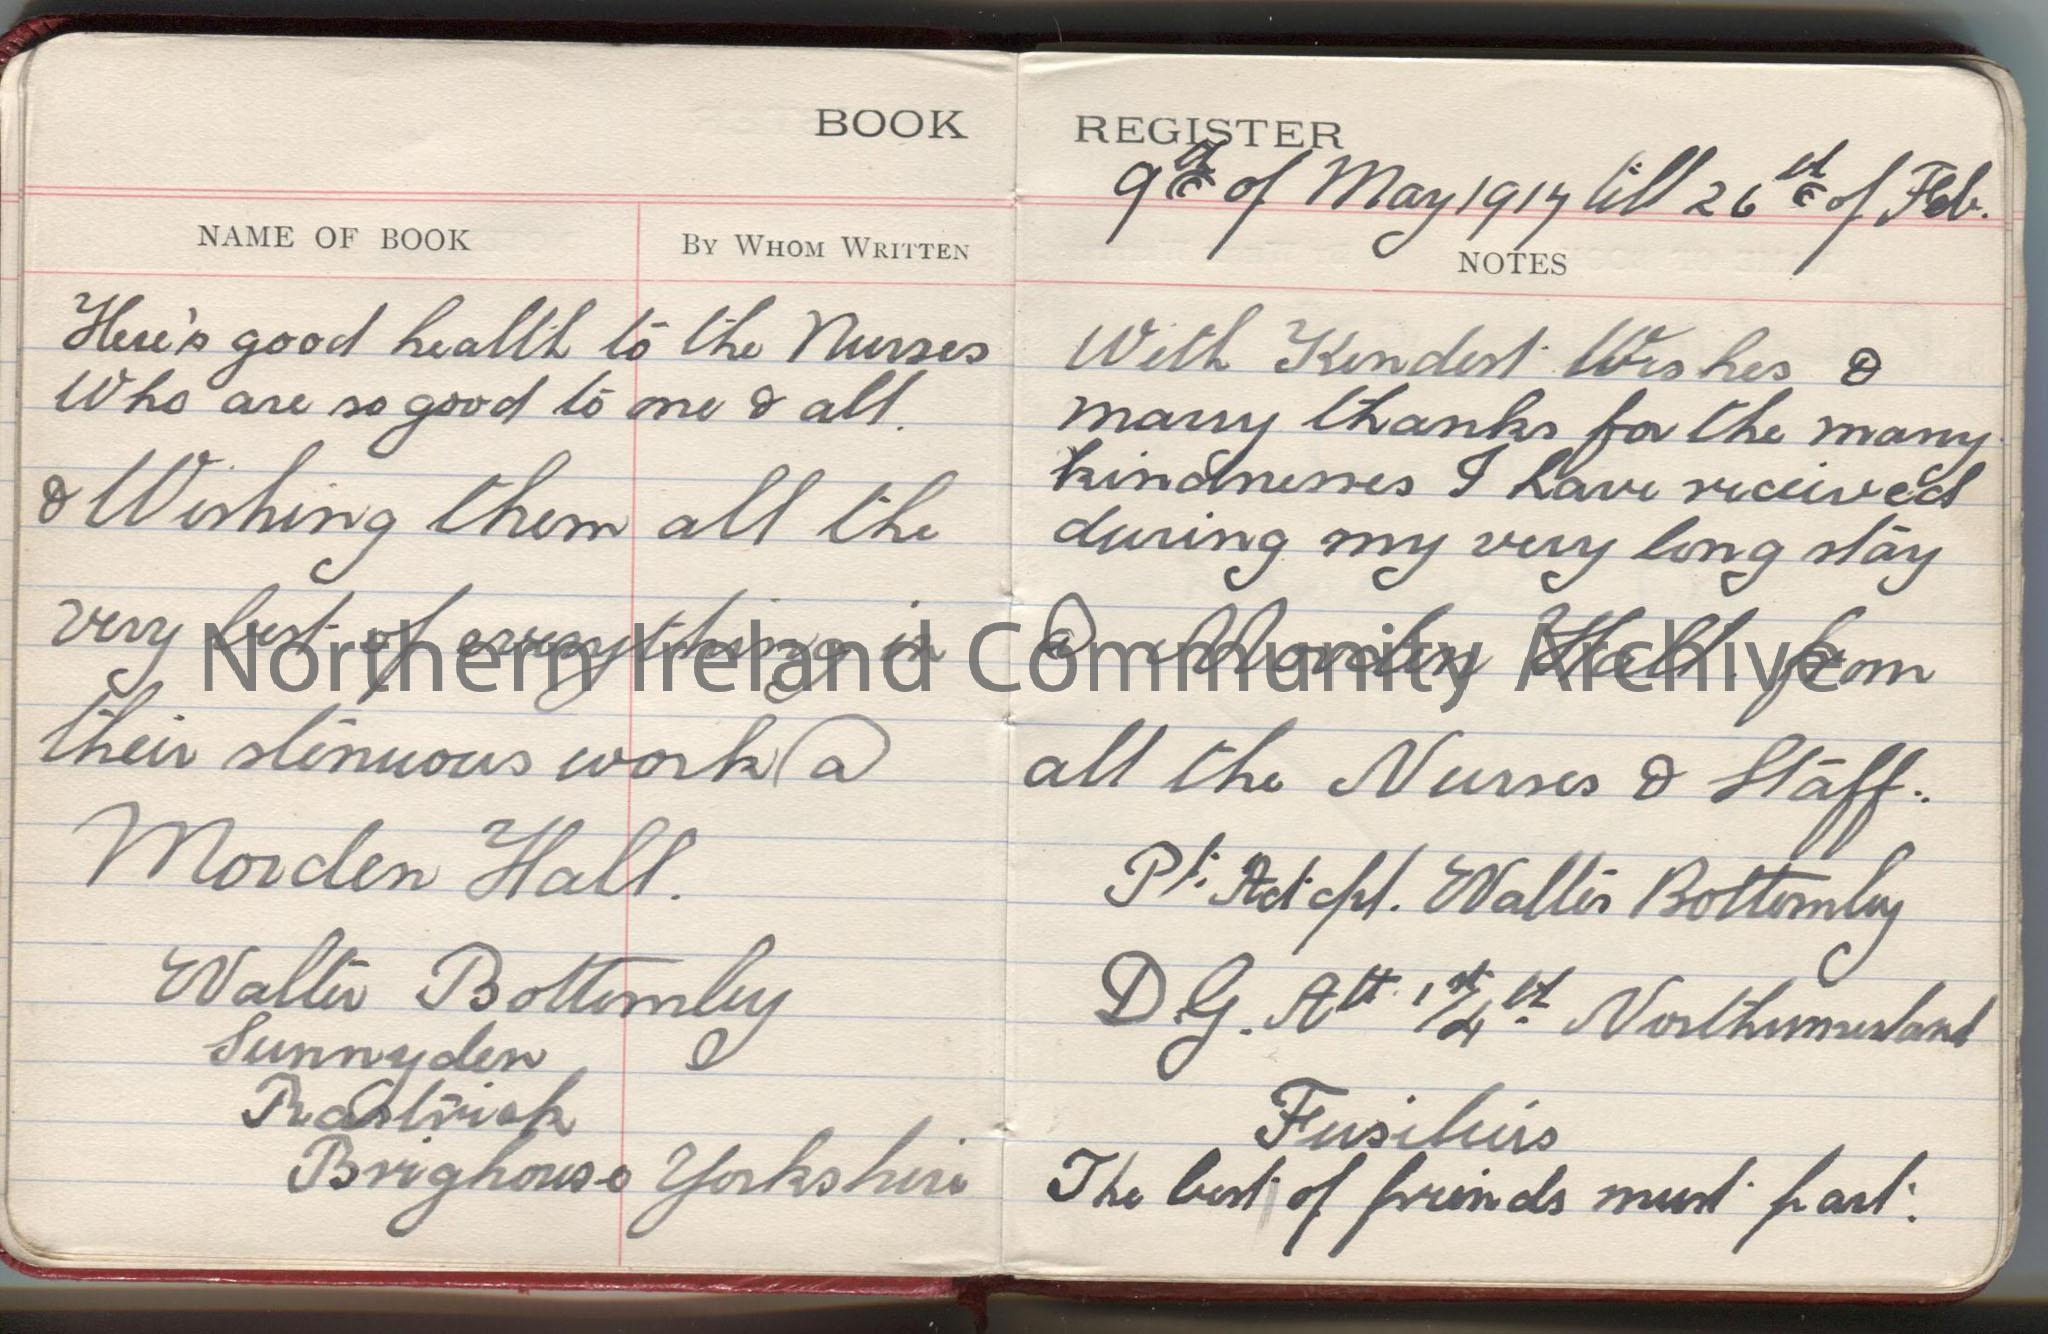 BOOK
NAME OF BOOK
BY WHOM WRITTEN
Here's good health to the Nurses
Who are so good to one & all.
& Wishing them all the
very best of everything in
their stenuous work @
Morden Hall.
Walter Bottomley
Sunnyden
Rastrick
Brighouse Yorkshire
REGISTER
9th of May 1917 till 26th of Feb.
NOTES
With Kindest Wishes &
many thanks for the many
kindnesses I have received
during my very long stay
@ Morden Hall. from
all the Nurses & Staff.
Pt. Act cpl. Walter Bottomley
D.G. Att. 1st/4th Northumberland
Fusiliers
The best of friends must part.
Northern Ireland Community Archive